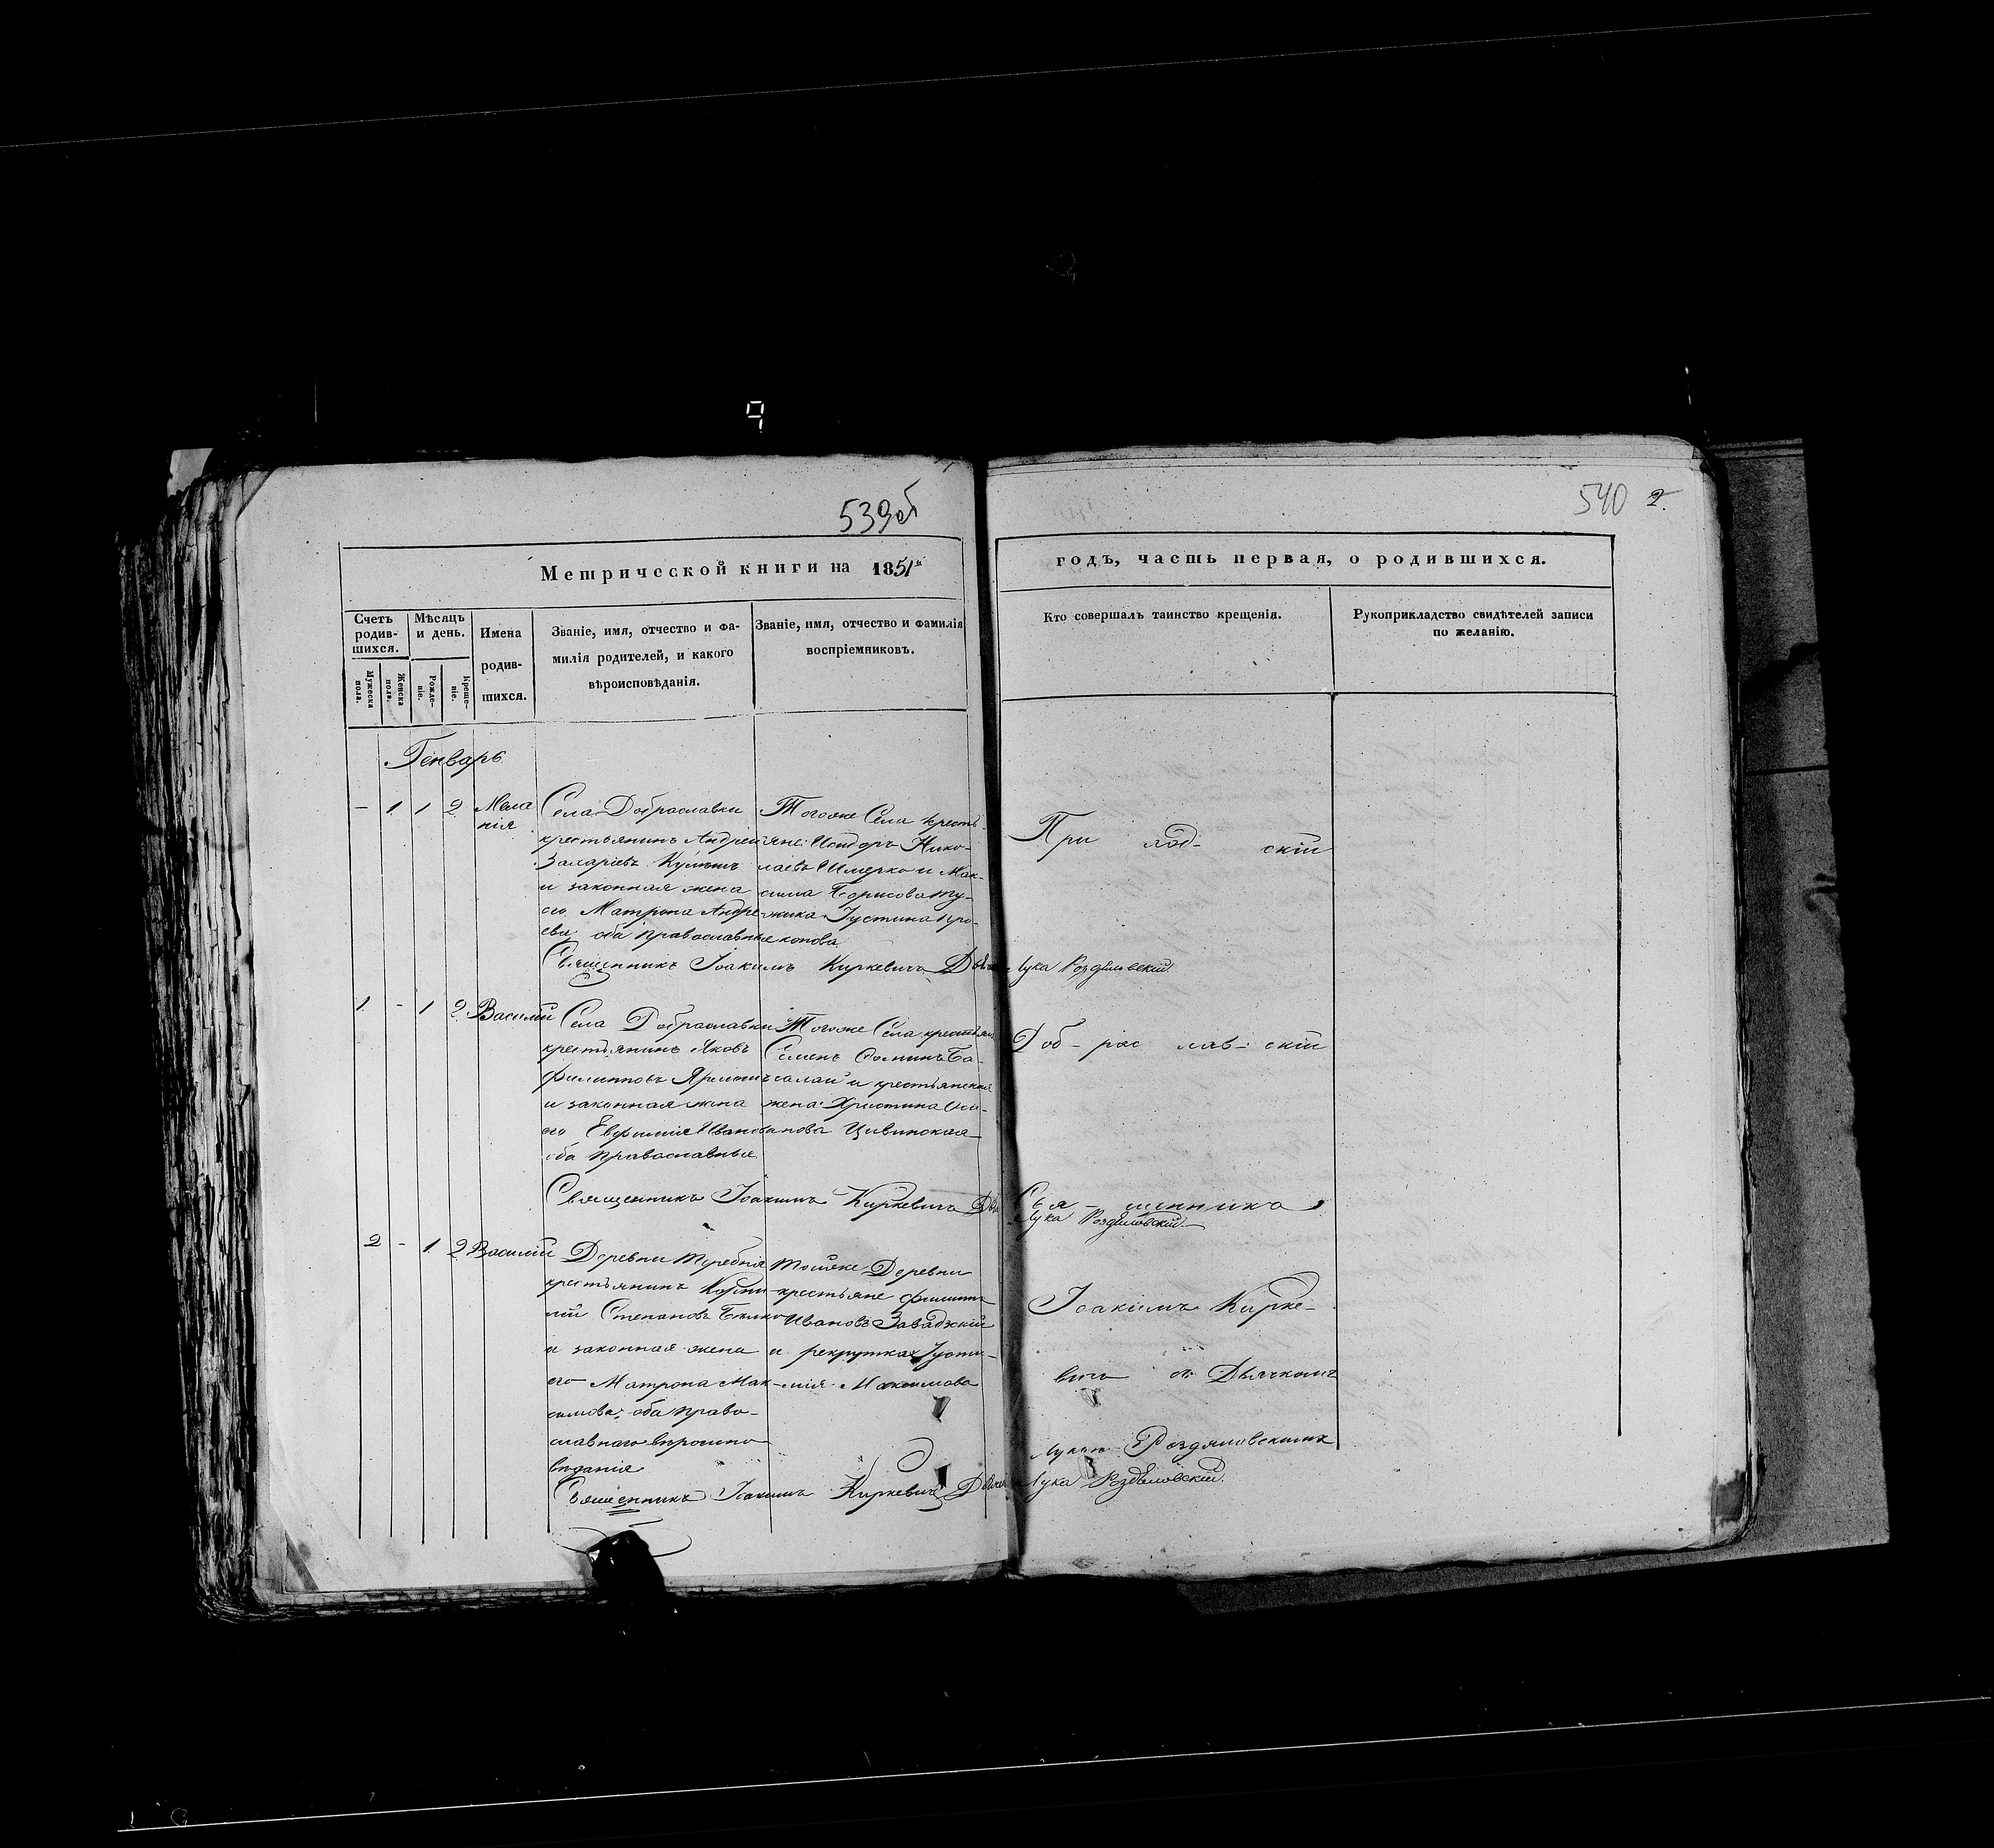 9
539об
540 2.
Метрической книги на 1851й
годъ, часть первая, о родившихся.
Счетъ родив-шихся.
Мѣсяцъ и день.
Имена родив-шихся.
Званіе, имя, отчество и фа-
милія родителей, и какого
вѣроисповѣданія.
Званіе, имя, отчество и фамилія
воспріемниковъ.
Кто совершалъ таинство крещенія.
Рукоприкладство свидѣтелей записи
по желанію.
Мужеска пола.
Женска пола.
Рожде-ніе.
Креще-ніе.
Генварь
– 1 1 2 Мела
нія
Села Добраславки
крестьянинъ Андрей
Захаріевъ
и законная жена
его Матрона Андре-
ева, оба православные
Тогоже Села кресть-
яне: Исидоръ Нико-
лаевъ и Мак-
сима Борисова
жика Іустина Про-
копова
При ход- скій
Священникъ Іоакимъ Киркевичъ Дьяч Лука Роздѣловскій.
1 - 1 2 Василій
Села Добраславки
крестьянинъ Яковъ
Филипповъ
и законная жена
его Евфимія Иванова
оба православные
Тогоже Села крестьян
Семенъ Фоминъ Ба-
салай и крестьянская
жена Христина
анова Цивинская
Доб- рос лав- скій
Священникъ Іоакимъ Киркевичъ
Свя – щенникъ
Лука Роздѣловскій
2 - 1 2 Василій
Деревни Теребня
крестьянинъ Корни-
лій Степановъ
и законная жена
его Матрона Мак-
симова, оба право-
славнаго вѣроиспо-
вѣданія
Тойже Деревни
крестьяне Филиппъ
Ивановъ Завадзкій
и рекрутка Іусти-
нія Максимова
Іоакимъ Кирке-
вичъ съ Дьячкомъ
Лукою Роздяловскимъ
Священникъ Іоакимъ Киркевичъ Дьячк Лука Роздѣловскій.